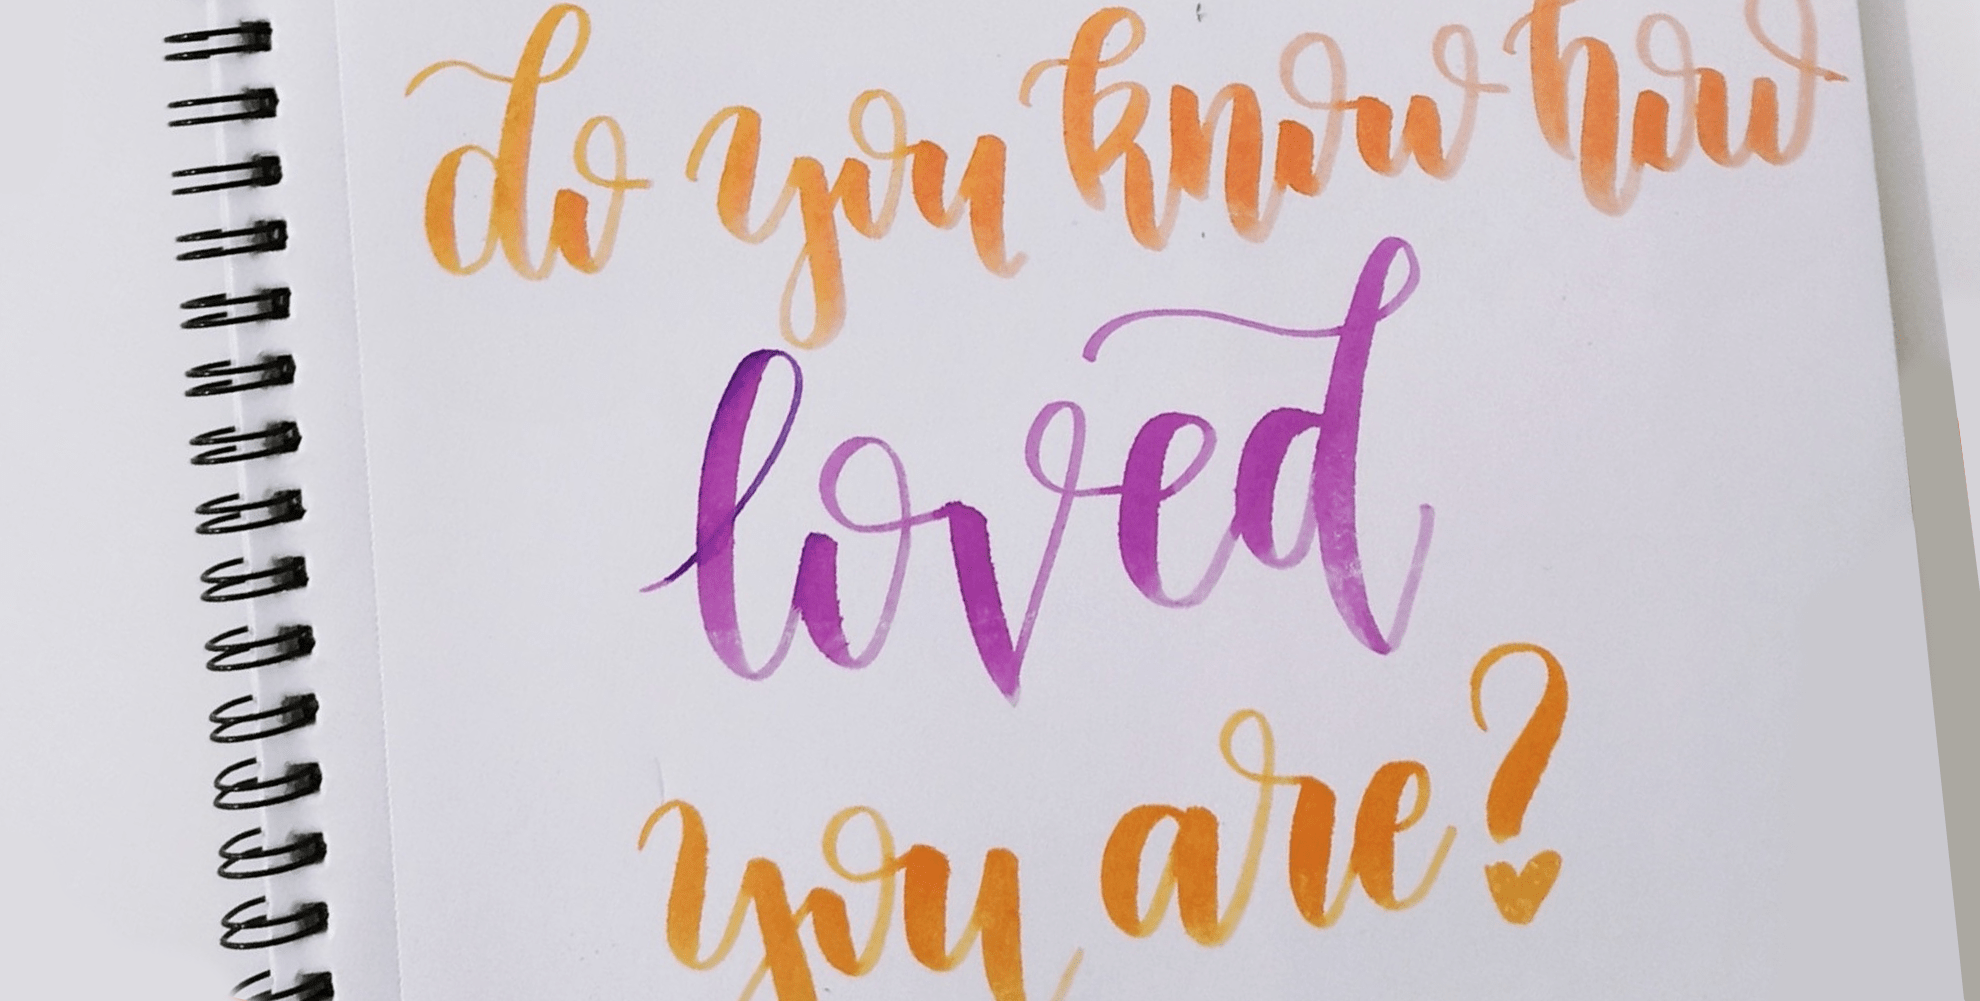 do you know how
loved
you are?